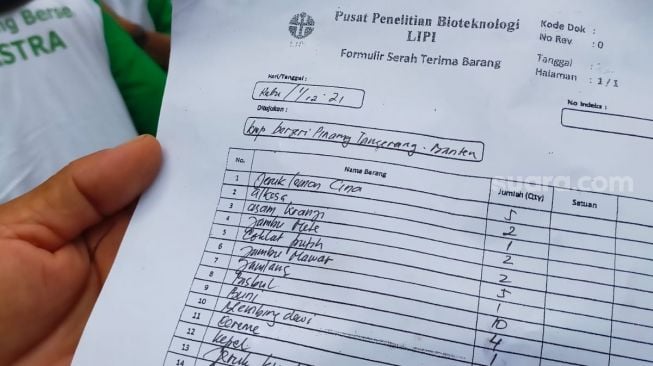 ng Berse
STRA
Pusat Penelitian Bioteknologi
LIPI
LIPI
Formulir Serah Terima Barang
Kode Dok :
No Rev : 0
Tanggal :
Halaman : 1/1
Hari/Tanggal :
Rabu / 1/12-21
No Indeks :
Diajukan :
kmp bergeri Pinang Tangerang - Banten
No. Nama Barang Jumlah (Qty) Satuan
1 Jeruk lemon Cina 5
2 alkesa 2
3 asam kranji 1
4 Jambu Mete 2
5 Coklat putih
6 Jambu Mawar 2
7 Jamlang 5
8 1
9 Buni 10
10 Membing dewi 4
11 1
12 kepel
13 Jeruk
14
suara.com